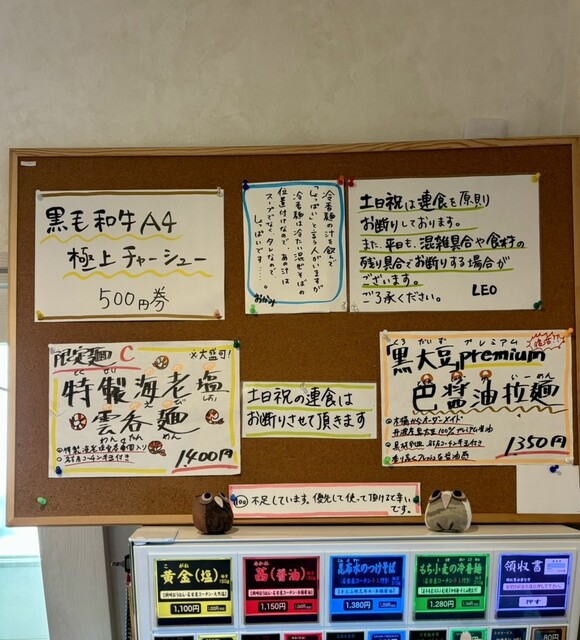 黒毛和牛A4
極上チャーシュー
500円券
冷香麺の汁を飲んで
「しょっぱい」と言う人がいますが
冷香麺は冷たい混ぜそばの
位置付けなので、あの汁は
スープでなく、タレなので
しょっぱいです……。
土日祝は連食を原則
お断りしております。
また、平日も、混雑具合や食材の
残り具合でお断りする場合が
ございます。
ご了承ください。
LEO
限定麺 C
※大盛可!
特製海老塩
雲呑麺
わんたんめん
1,400円
土日祝の連食は
お断りさせて頂きます
復活!?
くろだいずプレミアム
黒大豆premium
醤油拉麺
1350円
100 不足しています。優先して使って頂けると幸い
です。
こがね
黄金(塩)
1,100円
あかね
茜(醤油)
1,150円
昆布水のつけそば
1,380円
もち小麦の冷香麺
1,280円
領収書
押す